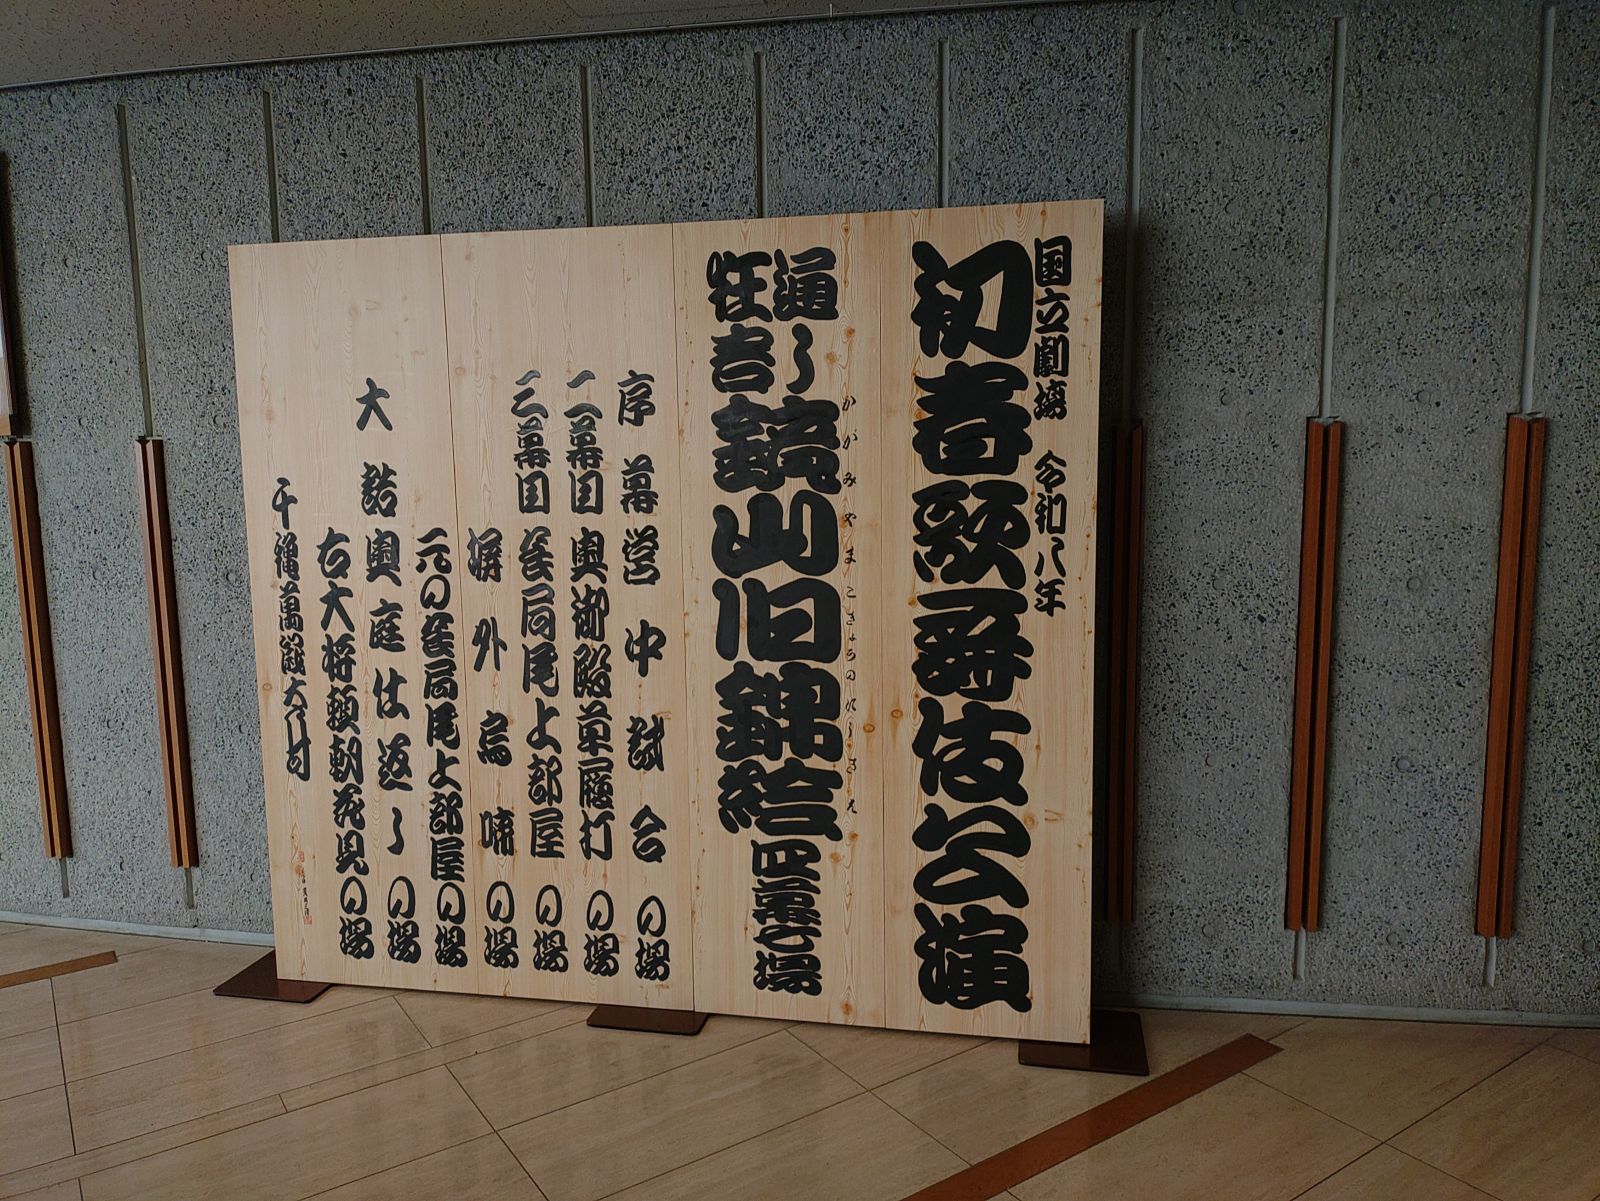 国立劇場 令和八年
初春歌舞伎公演
通し狂言
かがみやまこきょうのにしきえ
鏡山旧錦絵 四幕七場
序幕 営中試合の場
二幕目 奥御殿草履打の場
三幕目 長局尾上部屋の場
塀外烏啼の場
元の長局尾上部屋の場
大詰 奥庭仕返しの場
右大将頼朝花見の場
千穐萬歳大々叶